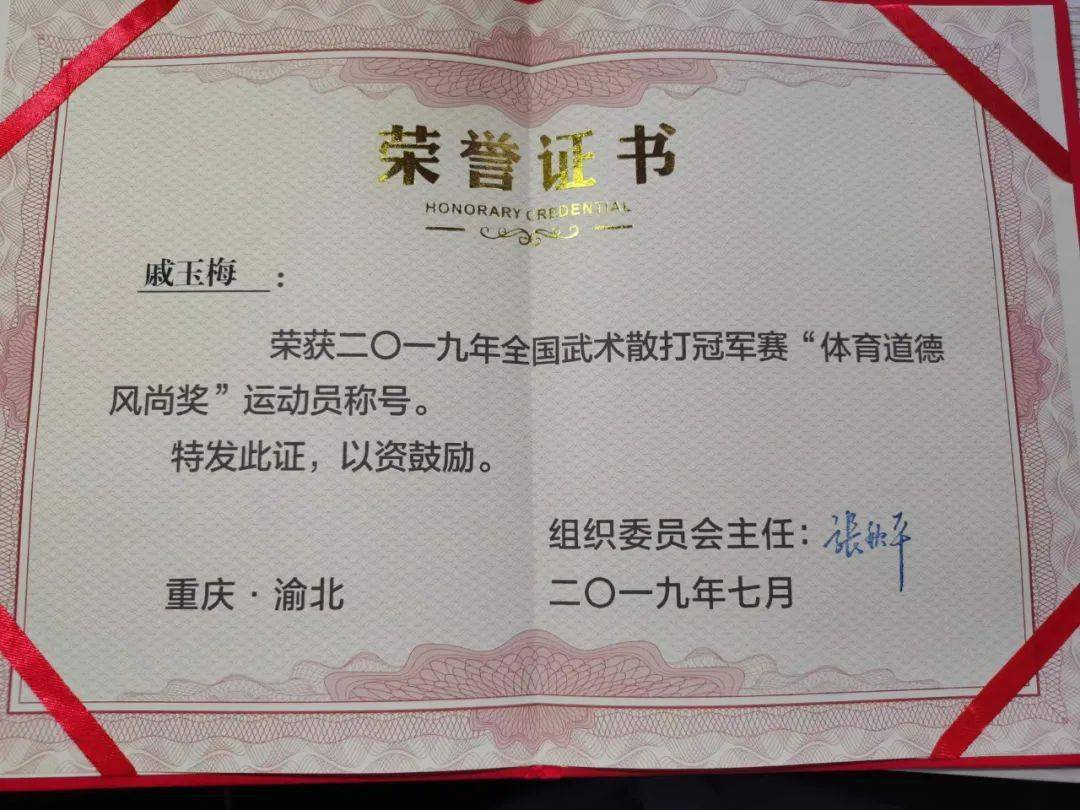 荣誉证书
HONORARY CREDENTIAL
戚玉梅：
荣获二〇一九年全国武术散打冠军赛“体育道德
风尚奖”运动员称号。
特发此证，以资鼓励。
组织委员会主任：张秋平
重庆·渝北 二〇一九年七月